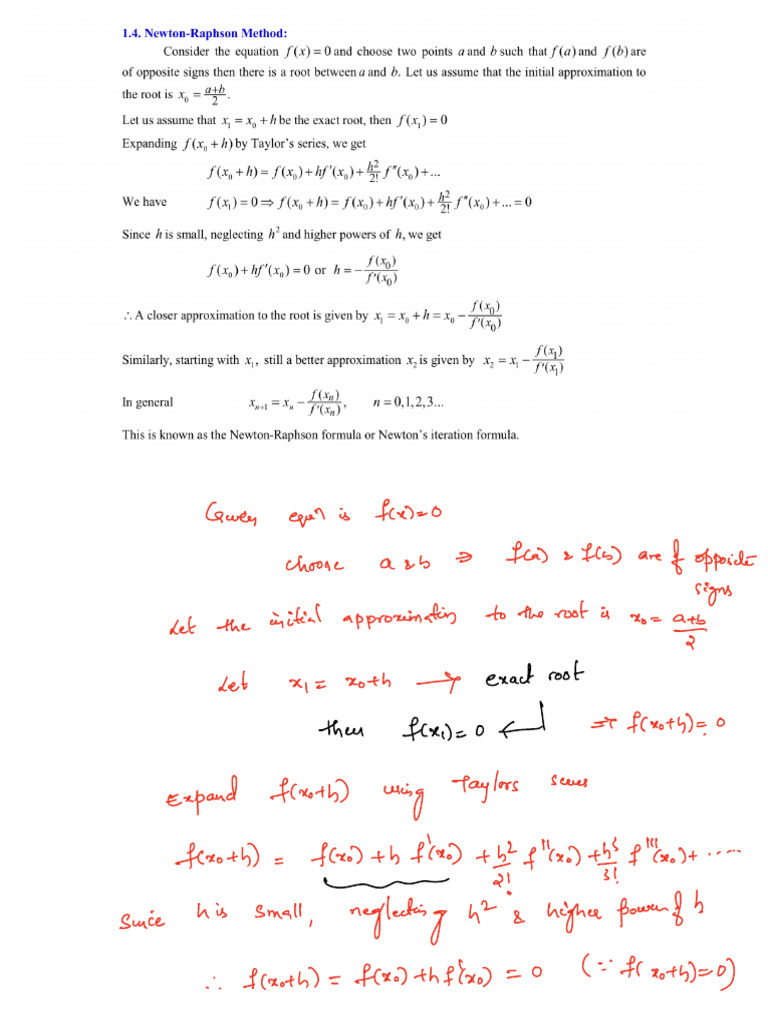 1.4. Newton-Raphson Method:
Consider the equation f(x) = 0 and choose two points a and b such that f(a) and f(b) are
of opposite signs then there is a root between a and b. Let us assume that the initial approximation to
the root is x₀ = (a+b)/2.
Let us assume that x₁ = x₀ + h be the exact root, then f(x₁) = 0
Expanding f(x₀ + h) by Taylor's series, we get
f(x₀ + h) = f(x₀) + hf′(x₀) + h²/2! f″(x₀) + ...
We have f(x₁) = 0 ⇒ f(x₀ + h) = f(x₀) + hf′(x₀) + h²/2! f″(x₀) + ... = 0
Since h is small, neglecting h² and higher powers of h, we get
f(x₀) + hf′(x₀) = 0 or h = − f(x₀)/f′(x₀)
∴ A closer approximation to the root is given by x₁ = x₀ + h = x₀ − f(x₀)/f′(x₀)
Similarly, starting with x₁, still a better approximation x₂ is given by x₂ = x₁ − f(x₁)/f′(x₁)
In general xₙ₊₁ = xₙ − f(xₙ)/f′(xₙ), n = 0,1,2,3...
This is known as the Newton-Raphson formula or Newton's iteration formula.
Given equn is f(x)=0
choose a & b ⇒ f(a) & f(b) are of opposite
signs
Let the initial approximation to the root is x₀ = (a+b)/2
Let x₁ = x₀+h → exact root
then f(x₁) = 0 ← ⇒ f(x₀+h) = 0
Expand f(x₀+h) using Taylors series
f(x₀+h) = f(x₀) + h f′(x₀) + h²/2! f″(x₀) + h³/3! f‴(x₀) + .....
Since h is small, neglecting h² & higher power of h
∴ f(x₀+h) = f(x₀) + h f′(x₀) = 0 (∵ f(x₀+h)=0)